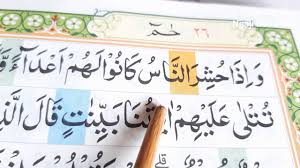 حٰمٓ ٢٦
وَاِذَا حُشِرَ النَّاسُ كَانُوْا لَهُمْ اَعْدَآءً وَّ
تُتْلٰى عَلَيْهِمْ اٰيٰتُنَا بَيِّنٰتٍ قَالَ الَّذِ